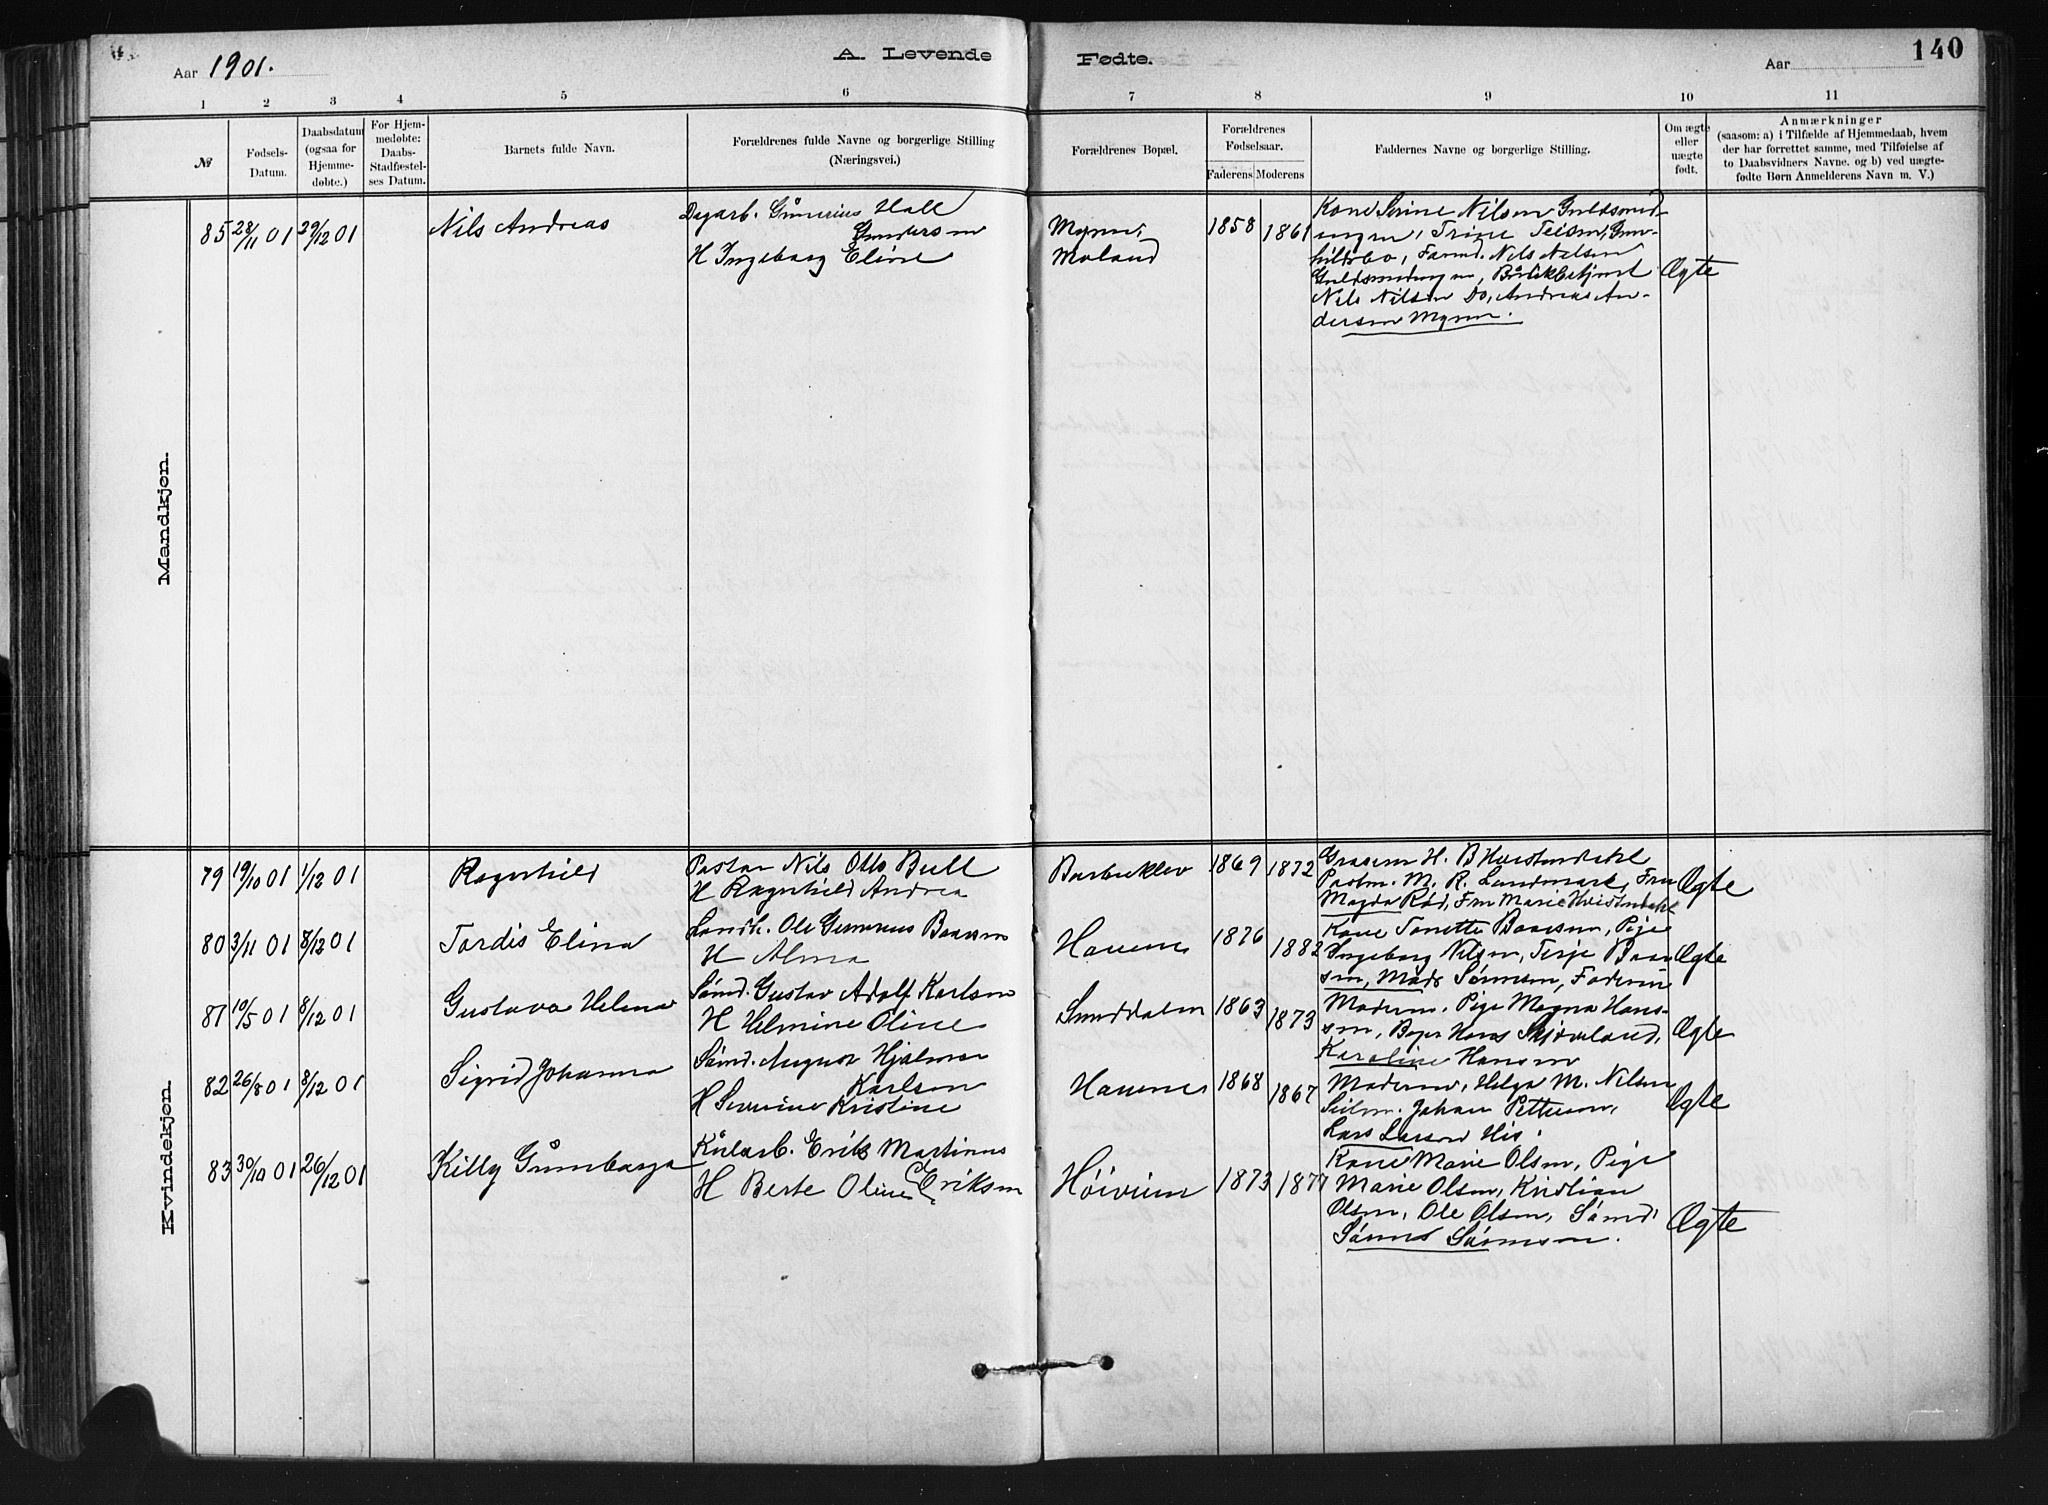 Aar 1901.
A. Levende Fødte.
Aar
140
1 2 3 4 5 6 7 8 9 10 11
№
Fødsels-Datum.
Daabsdatum (ogsaa for Hjemme-døbte.)
For Hjem-medøbte: Daabs-Stadfæstel-ses Datum.
Barnets fulde Navn.
Forældrenes fulde Navne og borgerlige Stilling (Næringsvei.)
Forældrenes Bopæl.
Forældrenes Fødselsaar.
Faderens Moderens
Faddernes Navne og borgerlige Stilling.
Om ægte eller uægte født.
Anmærkninger (saasom: a) i Tilfælde af Hjemmedaab, hvem der har forrettet samme, med Tilføielse af to Daabsvidners Navne. og b) ved uægte-fødte Børn Anmelderens Navn m. V.)
Mandkjøn.
85 28/11 01 29/12 01 Nils Andreas
Dagarb. Gunerius Hall
Gundersen
H Ingeborg Eline
Myrene,
Moland
1858 1861
Kone Serine Nilsen Guldsmed-
myren, Trine Teisen, Gun-
hildsbo, Farmd. Nils Nilsen
Guldsmedmyren,
Nils Nilsen Do, Andreas An-
dersen Myrene.
Ægte
Kvindekjøn.
79 19/10 01 1/12 01 Ragnhild
Pastor Nils Otto Bull
H Ragnhild Andrea
Barbuklev
1869 1872
H. B Hvistendahl
M. R. Landmark, Fru
Magda Rød, Fru Marie Hvistendahl
Ægte
80 3/11 01 8/12 01 Tordis Elina
Landh. Ole Gunerius Baarsen
H Alma
Havene
1876 1882
Kone Tonette Baarsen, Pige
Ingeborg Nilsen, Terje Baar-
sen, Mads Sørensen, Faderen
Ægte
81 19/5 01 8/12 01 Gustava Helena
Sømd. Gustav Adolf Karlsen
H Helmine Oline
Smeddalen
1863 1873
Moderen, Pige Magna Han-
sen, Hans Skjæveland,
Karoline Hansen
Ægte
82 26/8 01 8/12 01 Sigrid Johanna
Sømd. August Hjalmar
Karlsen
H Severine Kristine
Havene
1868 1867
Moderen, Helga M. Nilsen
Seilm. Johan Pettersen,
Lars Larsen His.
Ægte
83 30/10 01 26/12 01 Killy Gunborga
Kularb. Erik Martinus
H Berte Oline Eriksen
Høivein
1873 1877
Kone Marie Olsen, Pige
Marie Olsen, Kristian
Olsen, Ole Olsen, Sømd.
Søren Sørensen.
Ægte